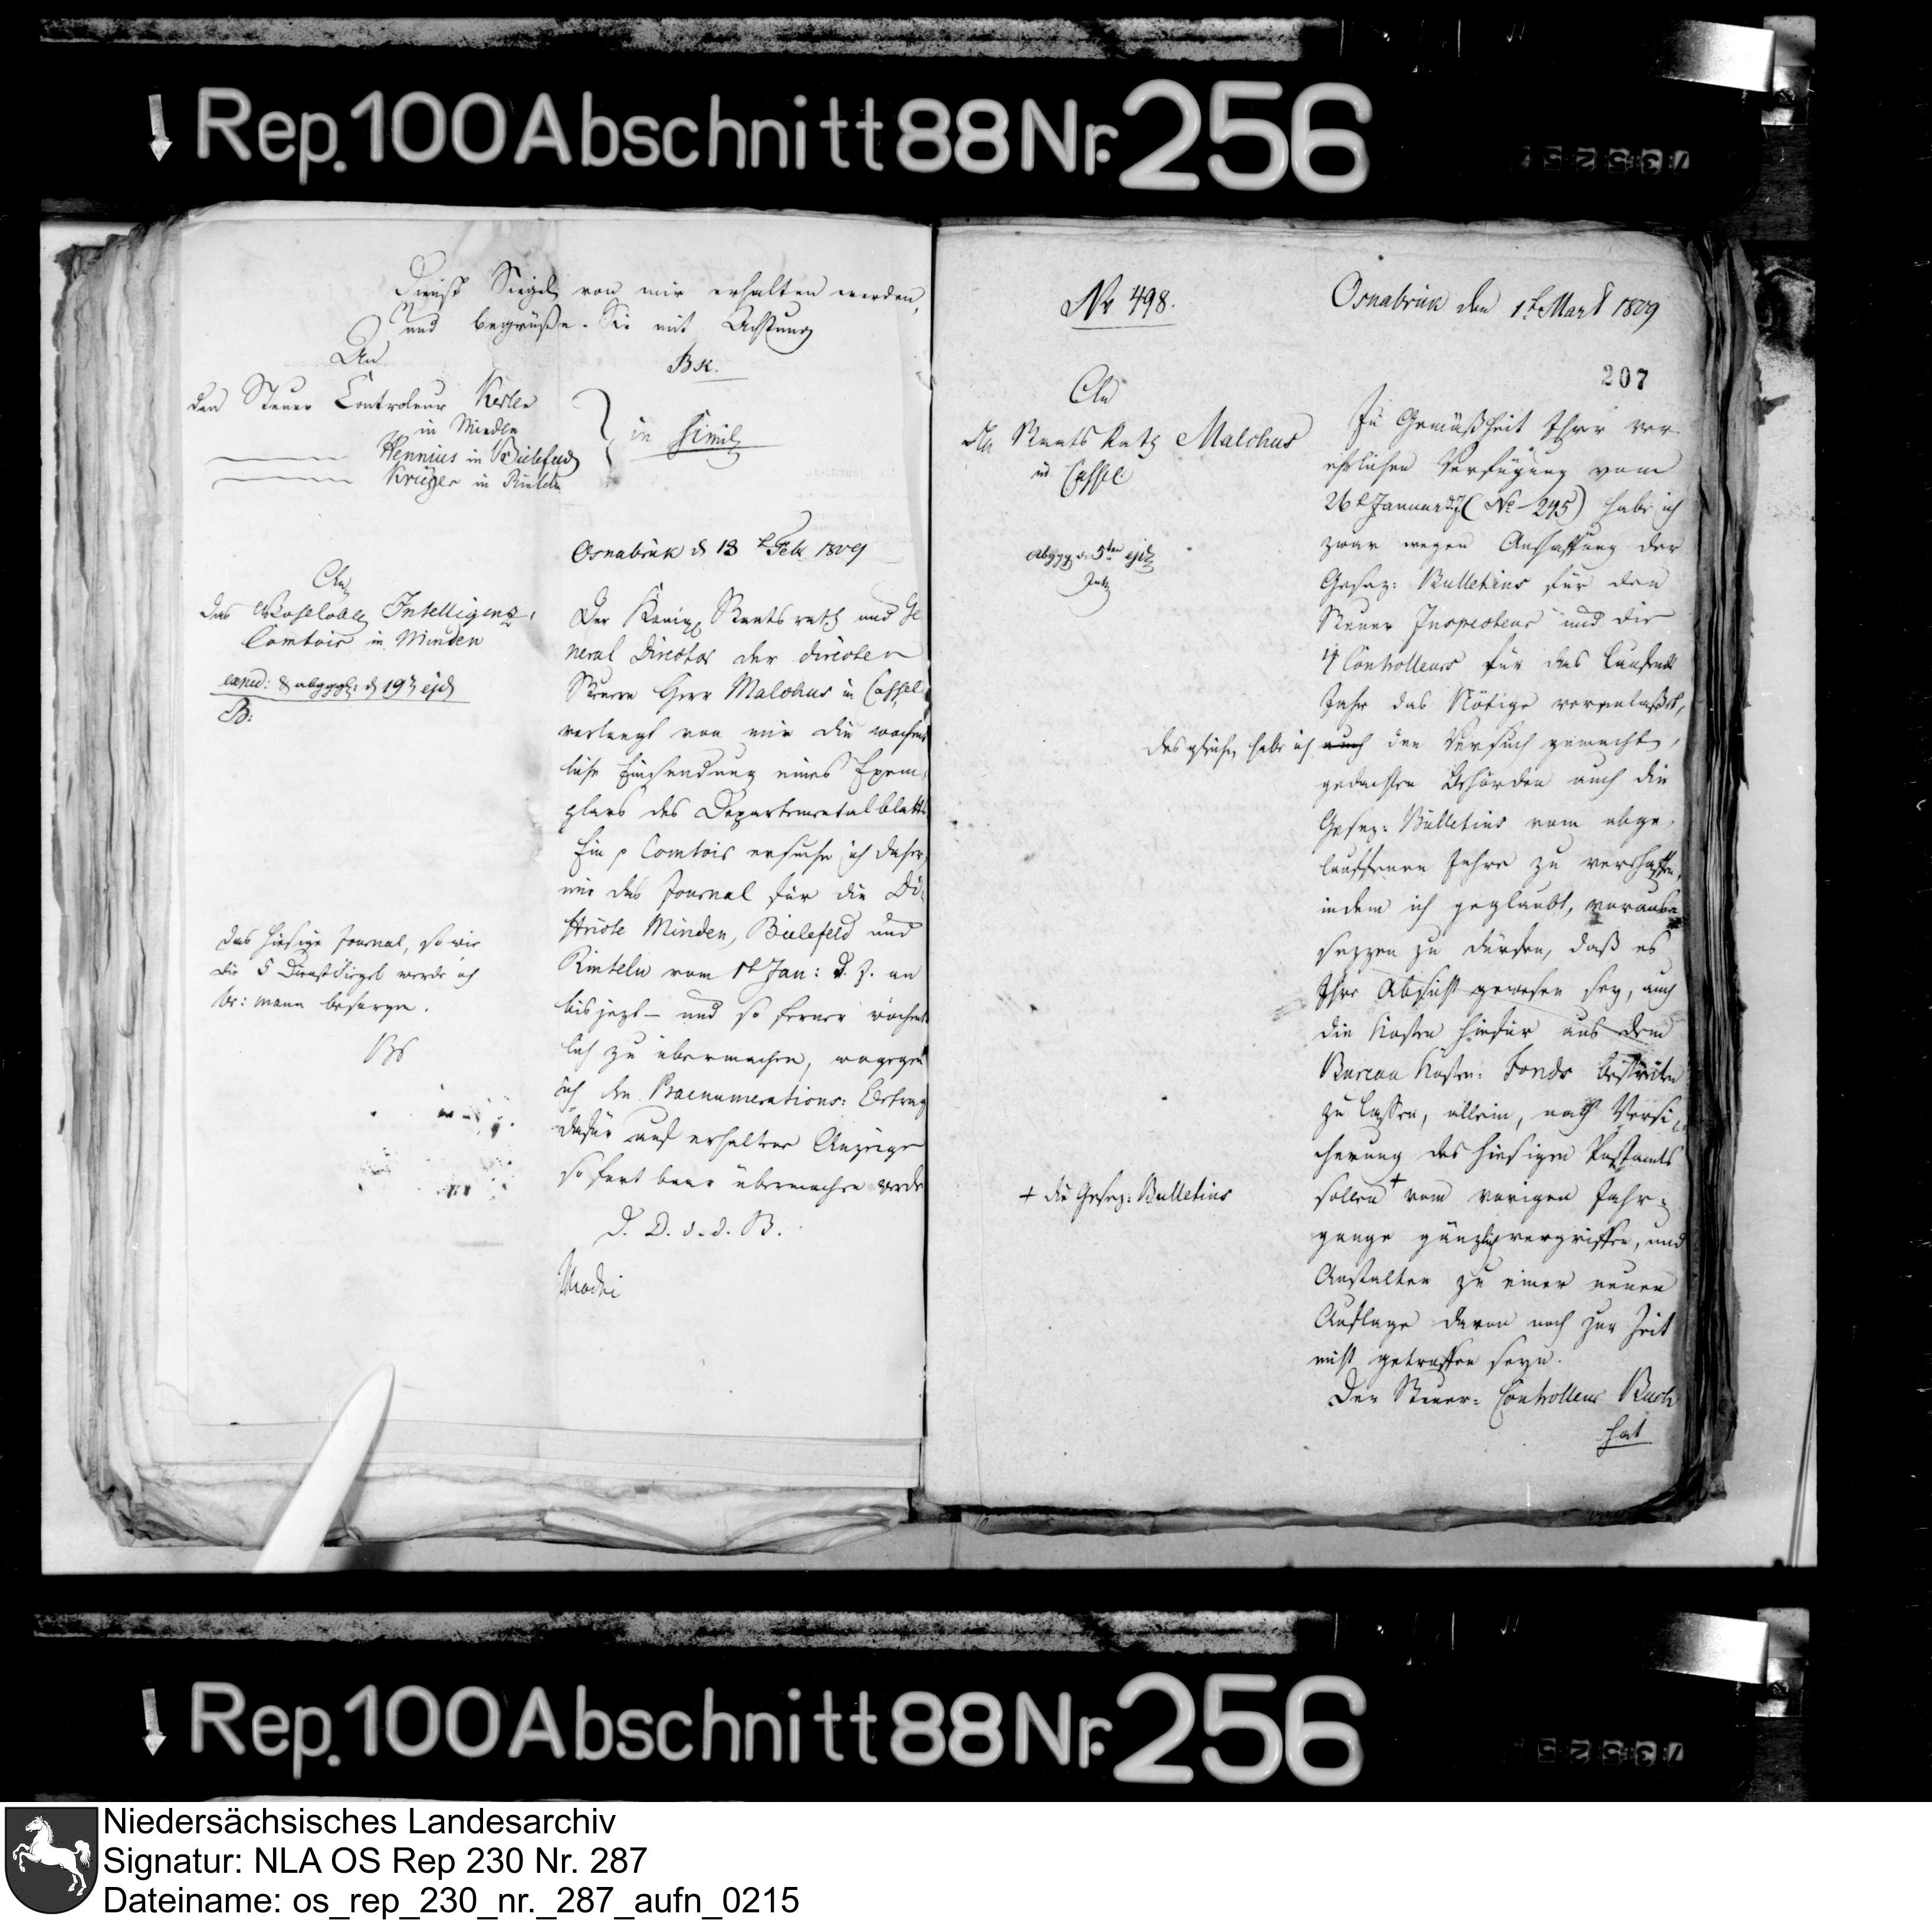 Rep. 100 Abschnitt 88 Nr. 256
Dienst Siegel von mir erhalten werden,
und begrüße Sie mit Achtung
Bk.
An
den Steuer Controleur Kerle
in Minden
Hennius in Bielefeld
Krüger in Rinteln
in simili
Osnabrük d 13 t Feb 1809
An
das Wohllöbl Intelligenz
Comtoir in Minden
exped: & abgeg: d 19t ejd
B:
Der Königl Staatsrath und Ge
neral Director der directen
Steuern Herr Malchus in Cassel
verlangt von mir die wöchent
liche Einsendung eines Exem
plars des Departementalblatts
Ein p Comtoir ersuche ich daher,
mir das Journal für die Di
stricte Minden, Bielefeld und
Rinteln vom 1t Jan: d. J. an
bis jezt – und so ferner wöchent
lich zu übermachen, wogegen
ich den Praenumerations: Betrag
dafür auf erhaltene Anzeige
sofort baar übermachen werde
D. D. d. d. B.
das hiesige Journal, so wie
die 5 Dienst Siegel werde ich
besorgen.
Bk
No 498.
Osnabrük den 1t Marz 1809
207
An
den Staats Rath Malchus
in Cassel
abgeg d 5ten ejd
Zu Gemäßheit Ihrer ver
ehrlichen Verfügung vom
26t Januar d. J. (No 295) habe ich
zwar wegen Anschaffung der
Gesez: Bulletins für den
Steuer Inspecteur und die
4 Controlleurs für das laufende
Jahr das Nötige veranlaßet,
desgleichen habe ich auch den Versuch gemacht,
gedachten Behörden auch die
Gesez: Bülletins vom abge
lauffenen Jahre zu verschaffen,
indem ich geglaubt, voraus
sezzen zu dürfen, daß es
Ihre Absicht gewesen sey, auch
die Kosten hiefür aus dem
Bureau Kosten: Fonds bestreiten
zu lassen, allein, nach Versi
cherung des hiesigen Postamts
sollen + vom vorigen Jahr
gange gänzlich vergriffen, und
+ die Gesez: Bulletins
Anstalten zu einer neuen
Auflage davon noch zur Zeit
nicht getroffen seyn.
Der Steuer: Controlleur Buch
hat
Rep. 100 Abschnitt 88 Nr. 256
Niedersächsisches Landesarchiv
Signatur: NLA OS Rep 230 Nr. 287
Dateiname: os_rep_230_nr._287_aufn_0215